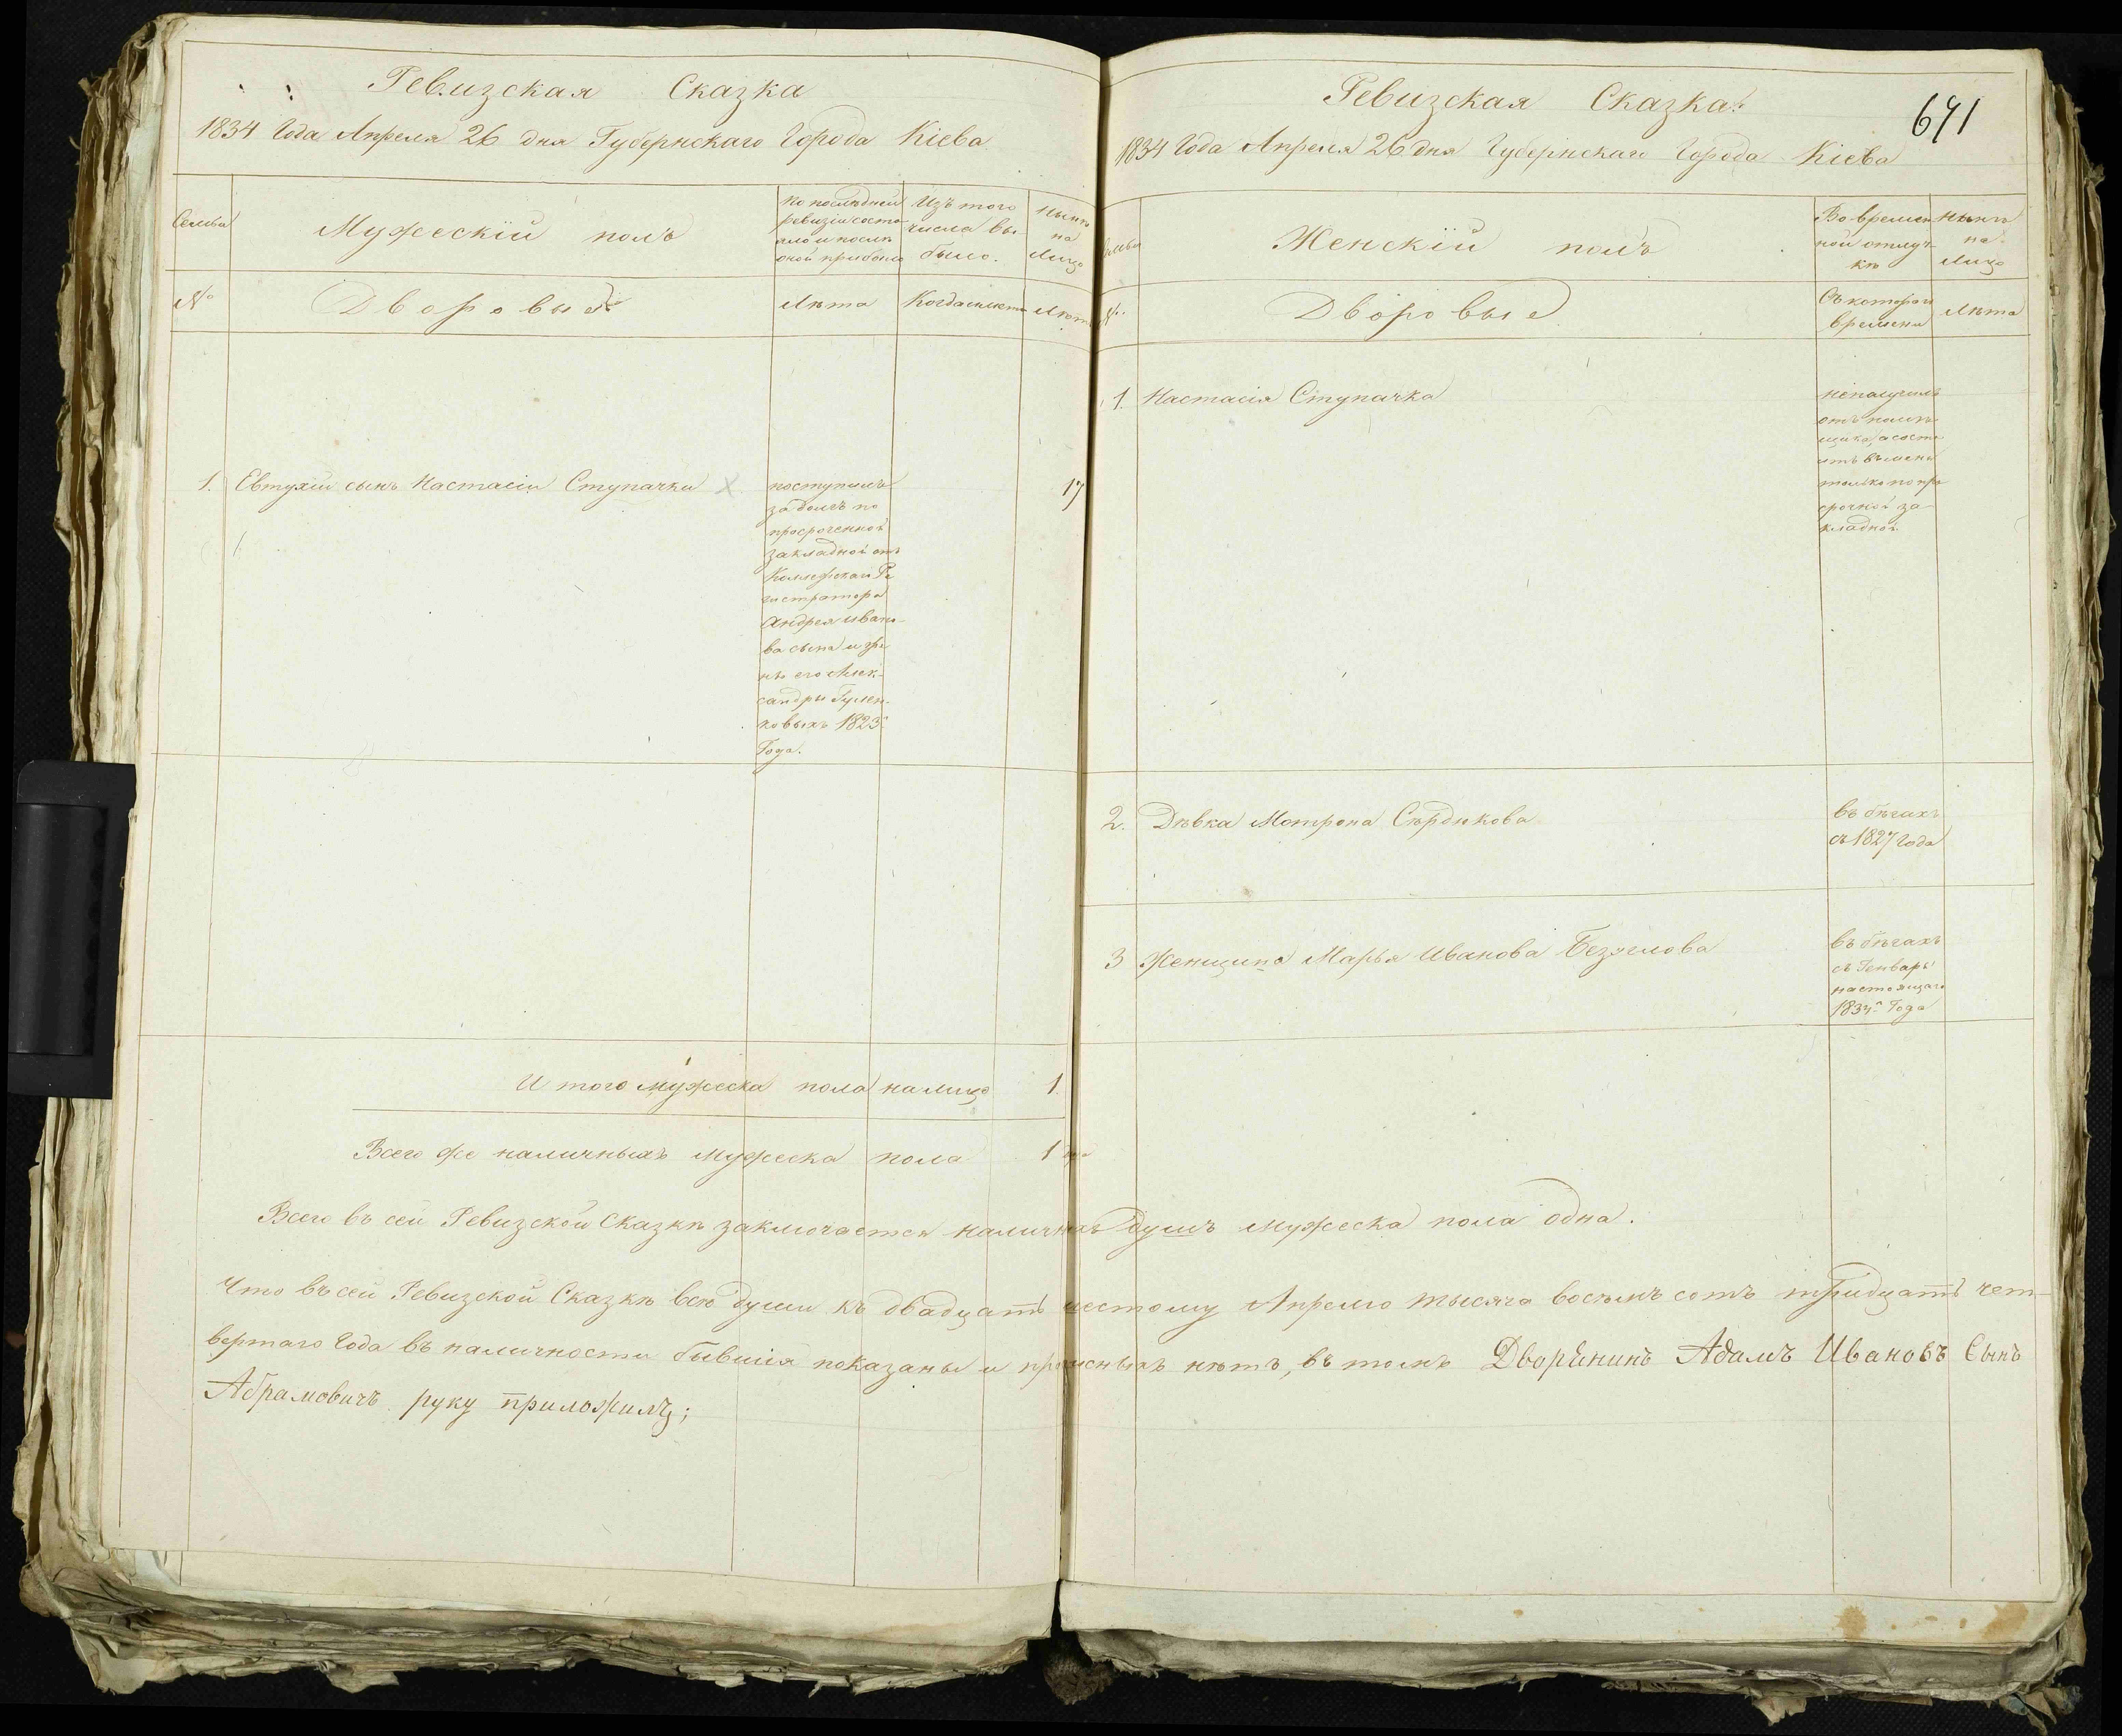 Ревизская Сказка
1834 Года Апреля 26 дня Губернскаго Города Кіева
Семьи
Мужескій полъ
По последней
ревизіи состо-
яло и послѣ
оной прибыло
Изъ того
числа вы-
было.
Нынѣ
на
Лицо
№
Дворовые
Лѣта
Когда именно
Лѣта
1. Евтухій сынъ Настасіи Ступачки
поступилъ
за долгъ по
просроченной
закладной отъ
Колежскаго Ре
гистратора
Андрея Ивано-
ва сына и же
ны его Алек-
сандры
1823го
Года.
17
И того мужеска пола на лицо 1.
Всего же наличныхъ мужеска пола 1
Ревизская Сказка
671
1834 Года Апреля 26 дня Губернскаго Города Кіева
Семьи
Женскій полъ
Во времен-
ной отлуч-
кѣ
Нынѣ
на
Лицо
№
Дворовые
Съ котораго
времени
Лѣта
1. Настасія Ступачка
неполучилъ
отъ помѣ-
щика, а состо-
итъ въ мене
только по про
срочной за-
кладной.
2. Дѣвка Мотрона Сѣрдюкова
въ бѣгахъ
съ 1827 Года
3 Женщина Марья Иванова Безуглова
въ бѣгахъ
съ Генваря
настоящаго
1834го Года
Всего въ сей Ревизской Сказкѣ заключается наличныхъ душъ мужеска пола одна.
Что въ сей Ревизской Сказкѣ всѣ души къ двадцать шестому Апрелю тысяча восемь сотъ тридцать чет-
вертаго Года въ наличности бывшія показаны и прописныхъ нѣтъ, въ томъ Дворянинъ Адамъ Ивановъ Сынъ
Абрамовичъ руку приложилъ;